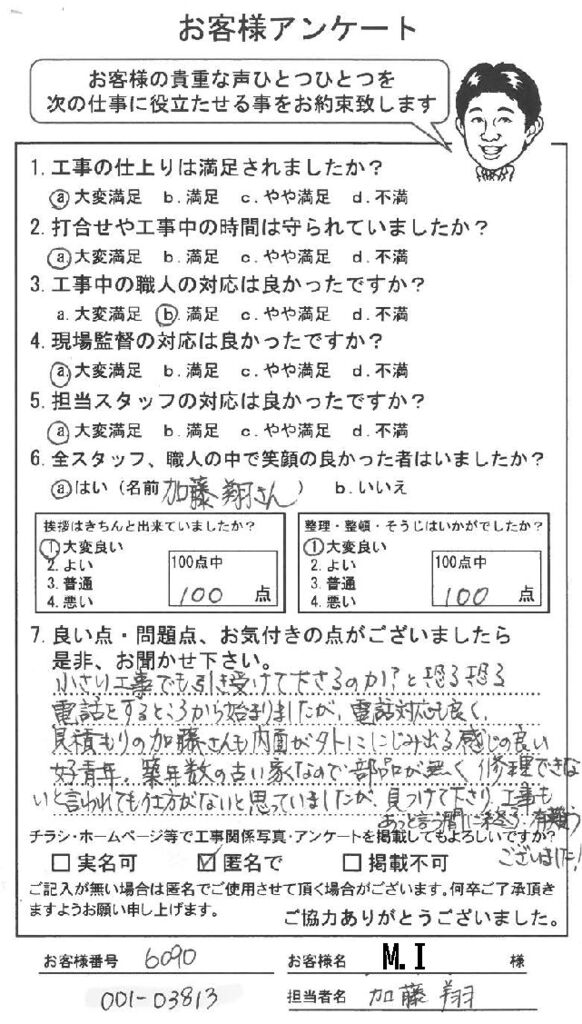 お客様アンケート
お客様の貴重な声ひとつひとつを
次の仕事に役立たせる事をお約束致します
1. 工事の仕上りは満足されましたか？
a 大変満足 b. 満足 c. やや満足 d. 不満
2. 打合せや工事中の時間は守られていましたか？
a 大変満足 b. 満足 c. やや満足 d. 不満
3. 工事中の職人の対応は良かったですか？
a. 大変満足 b. 満足 c. やや満足 d. 不満
4. 現場監督の対応は良かったですか？
a 大変満足 b. 満足 c. やや満足 d. 不満
5. 担当スタッフの対応は良かったですか？
a 大変満足 b. 満足 c. やや満足 d. 不満
6. 全スタッフ、職人の中で笑顔の良かった者はいましたか？
a はい（名前 加藤翔さん ） b. いいえ
挨拶はきちんと出来ていましたか？
1 大変良い
2. よい
3. 普通
4. 悪い
100点中
100 点
整理・整頓・そうじはいかがでしたか？
1 大変良い
2. よい
3. 普通
4. 悪い
100点中
100 点
7. 良い点・問題点、お気付きの点がございましたら
是非、お聞かせ下さい。
小さい工事でも引き受けて下さるのか？と恐る恐る
電話をするところから始まりましたが、電話対応も良く、
見積もりの加藤さんも内面が外ににじみ出る感じの良い
好青年。築年数の古い家なので部品が無く修理できな
いと言われても仕方がないと思っていましたが、見つけて下さり、工事も
あっと言う間に終了！有難う
ございました！
チラシ・ホームページ等で工事関係写真・アンケートを掲載してもよろしいですか？
□ 実名可 ☑ 匿名で □ 掲載不可
ご記入が無い場合は匿名でご使用させて頂く場合がございます。何卒ご了承頂き
ますようお願い申し上げます。
ご協力ありがとうございました。
お客様番号 6090 お客様名 M.I 様
001-03813 担当者名 加藤 翔